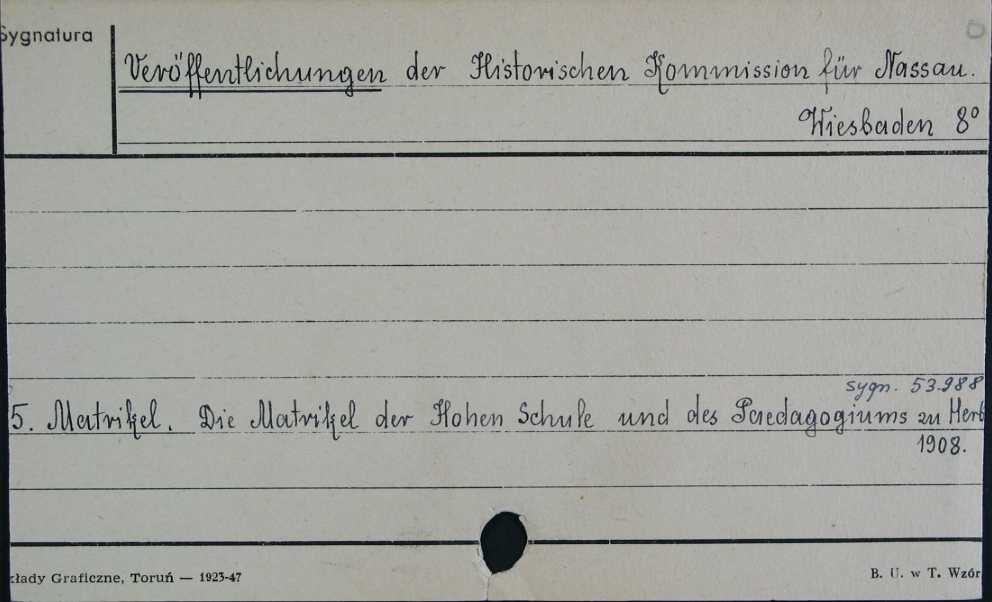 Sygnatura
Veröffentlichungen der Historischen Kommission für Nassau.
Wiesbaden 8°
sygn. 53.988
5. Matrikel. Die Matrikel der Hohen Schule und des Paedagogiums zu Herb
1908.
kłady Graficzne, Toruń — 1923-47
B. U. w T. Wzór